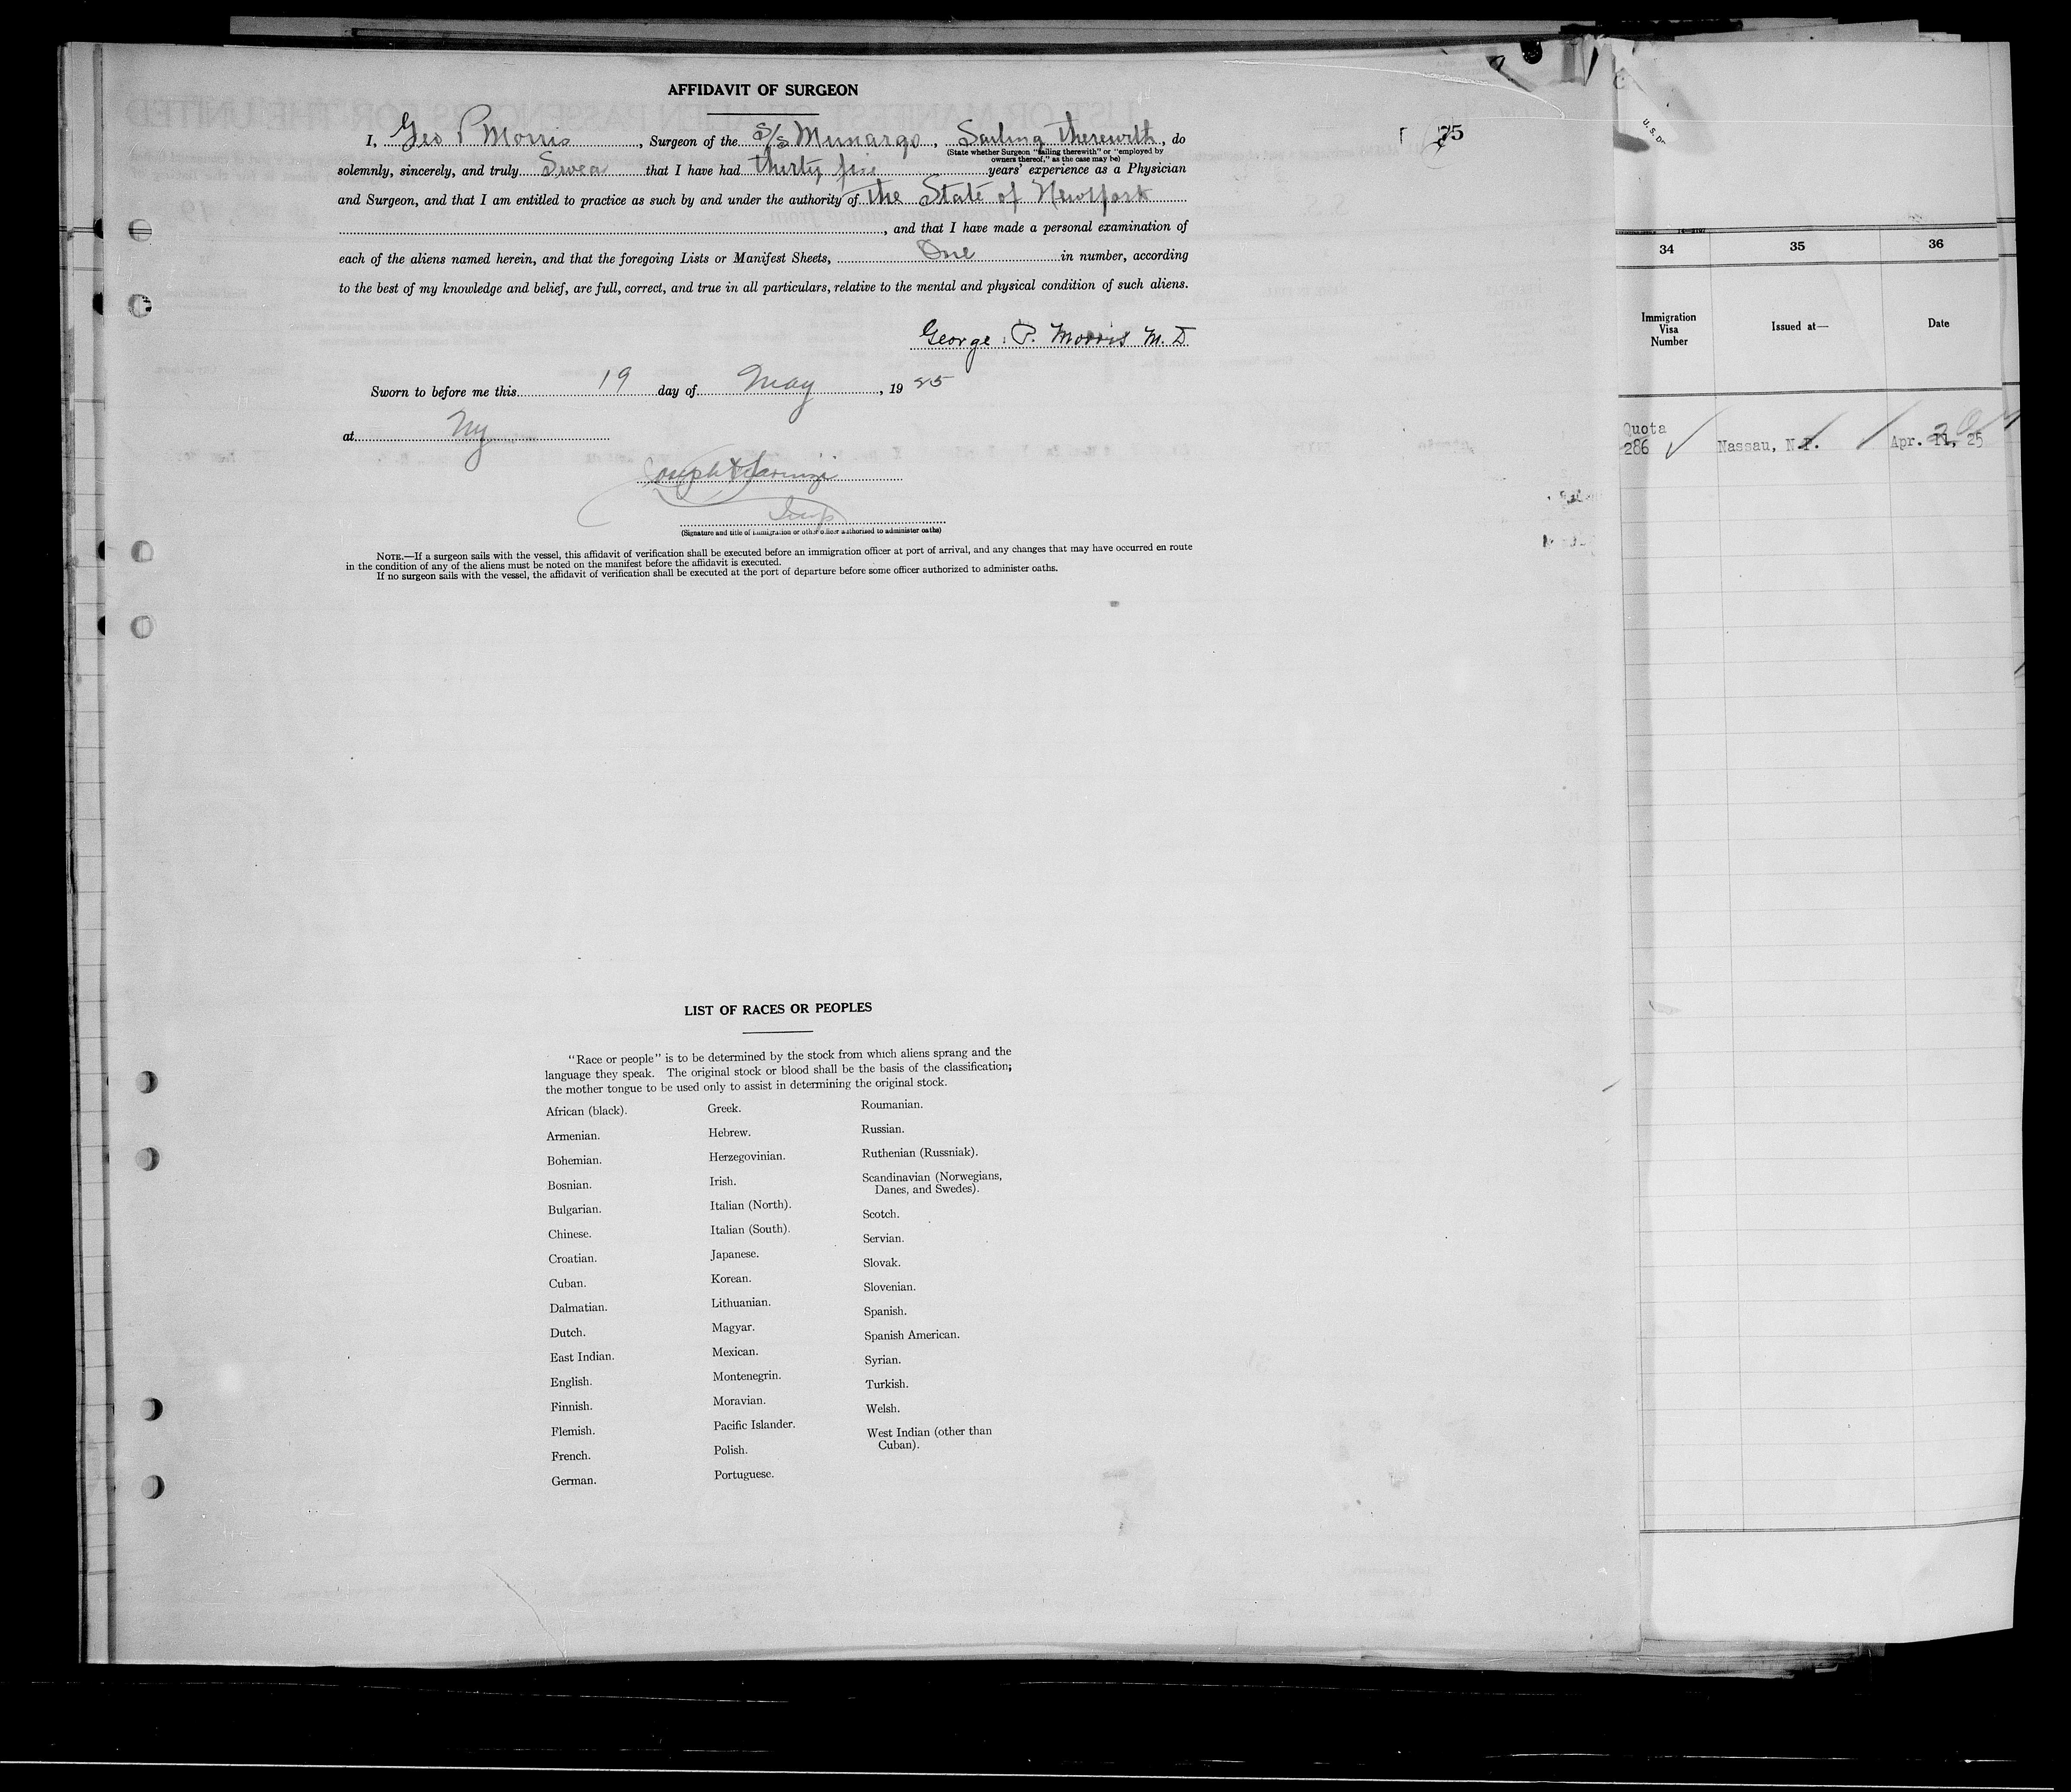 AFFIDAVIT OF SURGEON
I, Geo P Morris, Surgeon of the S/S Munargo, Sailing therewith, do
(State whether Surgeon "sailing therewith" or "employed by
owners thereof," as the case may be)
solemnly, sincerely, and truly Swear that I have had thirty five years' experience as a Physician
and Surgeon, and that I am entitled to practice as such by and under the authority of The State of New York
, and that I have made a personal examination of
each of the aliens named herein, and that the foregoing Lists or Manifest Sheets, One in number, according
to the best of my knowledge and belief, are full, correct, and true in all particulars, relative to the mental and physical condition of such aliens.
George P. Morris M.D
Sworn to before me this 19 day of May, 1925
at NY
Joseph
Insp
(Signature and title of immigration or other officer authorized to administer oaths)
NOTE.—If a surgeon sails with the vessel, this affidavit of verification shall be executed before an immigration officer at port of arrival, and any changes that may have occurred en route
in the condition of any of the aliens must be noted on the manifest before the affidavit is executed.
If no surgeon sails with the vessel, the affidavit of verification shall be executed at the port of departure before some officer authorized to administer oaths.
75
LIST OF RACES OR PEOPLES
"Race or people" is to be determined by the stock from which aliens sprang and the
language they speak. The original stock or blood shall be the basis of the classification;
the mother tongue to be used only to assist in determining the original stock.
African (black).
Armenian.
Bohemian.
Bosnian.
Bulgarian.
Chinese.
Croatian.
Cuban.
Dalmatian.
Dutch.
East Indian.
English.
Finnish.
Flemish.
French.
German.
Greek.
Hebrew.
Herzegovinian.
Irish.
Italian (North).
Italian (South).
Japanese.
Korean.
Lithuanian.
Magyar.
Mexican.
Montenegrin.
Moravian.
Pacific Islander.
Polish.
Portuguese.
Roumanian.
Russian.
Ruthenian (Russniak).
Scandinavian (Norwegians,
Danes, and Swedes).
Scotch.
Servian.
Slovak.
Slovenian.
Spanish.
Spanish American.
Syrian.
Turkish.
Welsh.
West Indian (other than
Cuban).
34 35 36
Immigration
Visa
Number
Issued at—
Date
Quota
286 Nassau, N.P. Apr. 11, 25